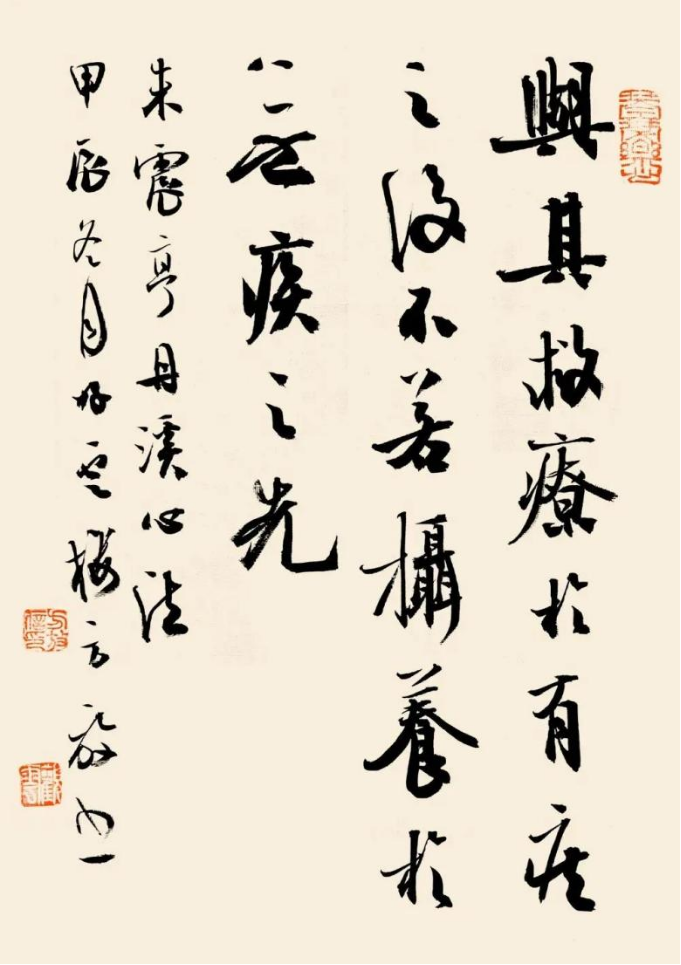 與其救療於有疾
之後不若攝養於
無疾之先
朱震亨丹溪心法
甲辰冬月雲樓方